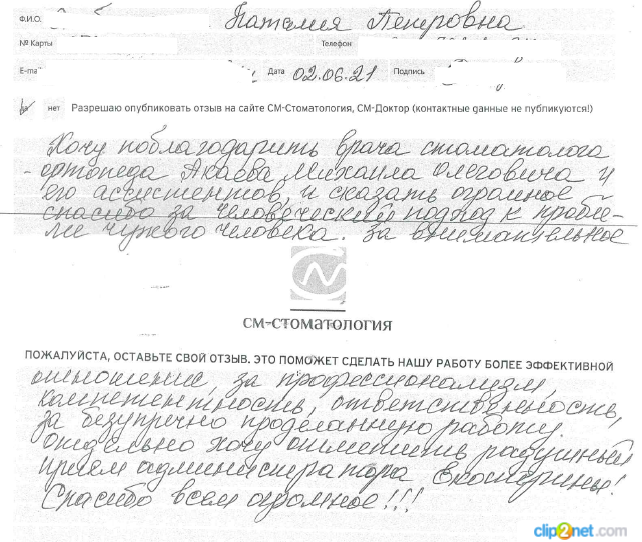 Ф.И.О. Наталия Петровна
№ Карты Телефон
E-mai Дата 02.06.21 Подпись
да нет Разрешаю опубликовать отзыв на сайте СМ-Стоматология, СМ-Доктор (контактные данные не публикуются!)
Хочу поблагодарить врача стоматолога
ортопеда Акаева Михаила Олеговича и
его ассистентов, и сказать огромное
спасибо за человеческий подход к пробле-
ме чужого человека. За внимательное
СМ-СТОМАТОЛОГИЯ
ПОЖАЛУЙСТА, ОСТАВЬТЕ СВОЙ ОТЗЫВ. ЭТО ПОМОЖЕТ СДЕЛАТЬ НАШУ РАБОТУ БОЛЕЕ ЭФФЕКТИВНОЙ
отношение, за профессионализм,
компетентность, ответственность,
за безупречно проделанную работу.
Отдельно хочу отметить радушный
приём администратора Екатерины!
Спасибо всем огромное!!!
clip2net.com